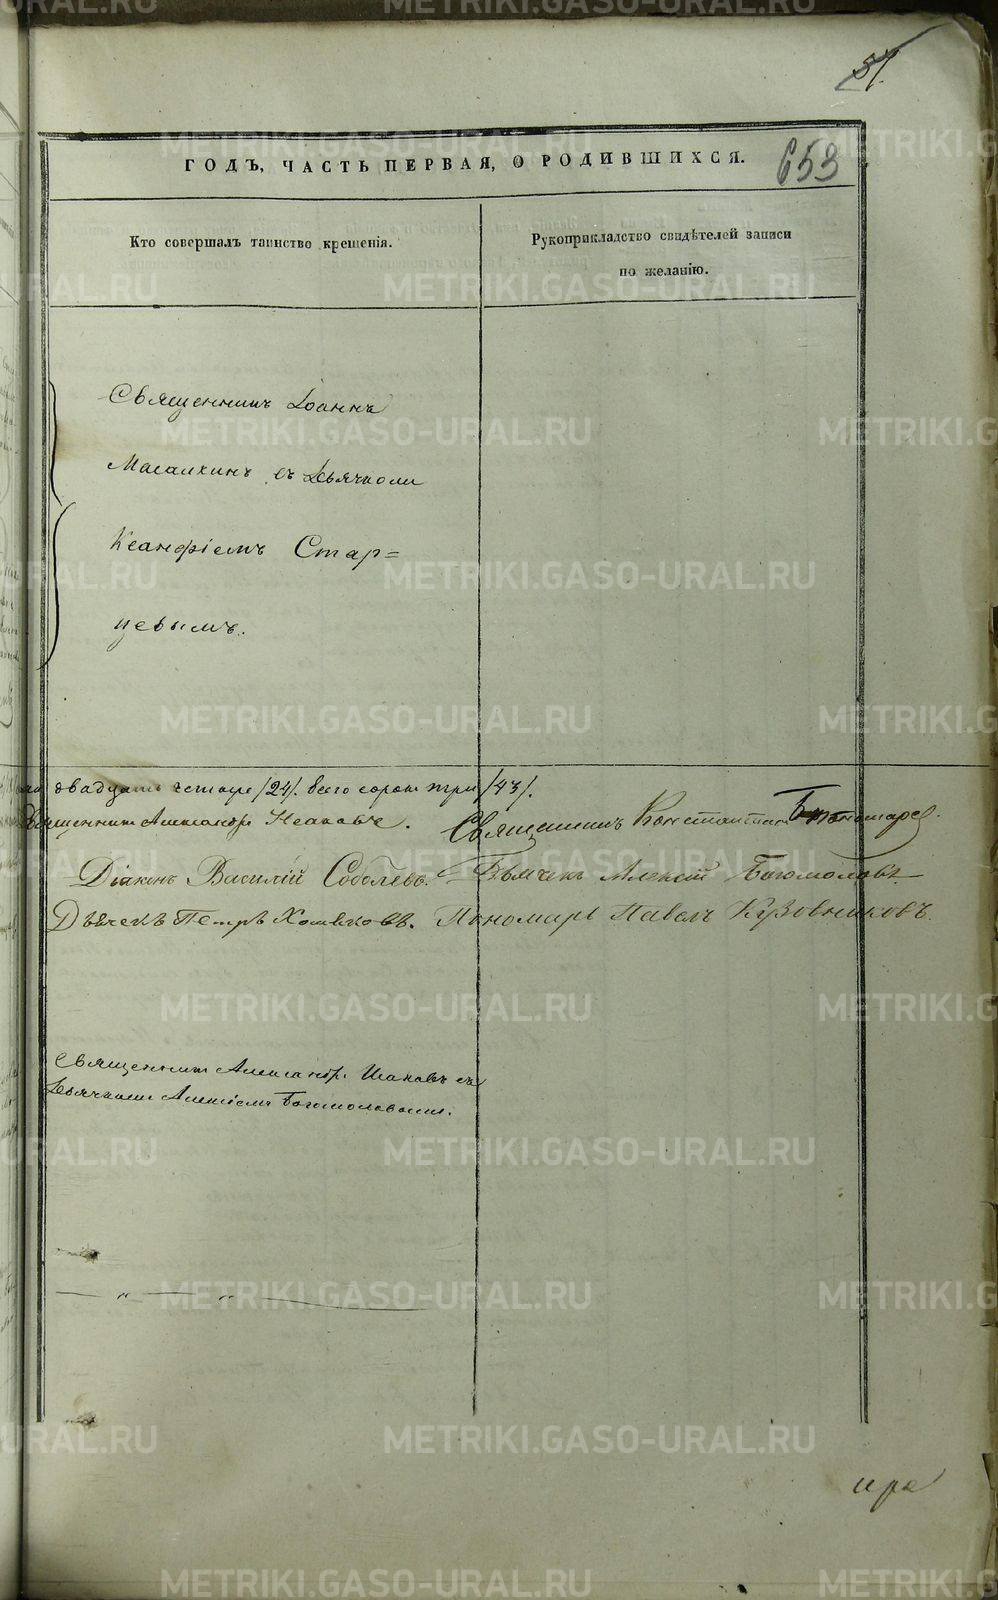 51.
ГОДЪ, ЧАСТЬ ПЕРВАЯ, О РОДИВШИХСЯ.
653
Кто совершалъ таинство крещенія.
Рукоприкладство свидѣтелей записи
по желанію.
Священникъ Іоаннъ
Масалкинъ съ Дьячкомъ
Ксанфіемъ Стар=
цевымъ.
двадцать четыре /24/. всего сорокъ три /43/.
Священникъ Александръ Исаковъ.
Священникъ Константинъ Пономаревъ
Діаконъ Василій Соболевъ. Дьячекъ Алексѣй Богомоловъ
Дьячекъ Петръ Хомяковъ. Пономарь Павелъ Кузовниковъ.
Священникъ Александръ Исаковъ съ
Дьячкомъ Алексіемъ Богомоловымъ.
— „ — „ —
METRIKI.GASO-URAL.RU